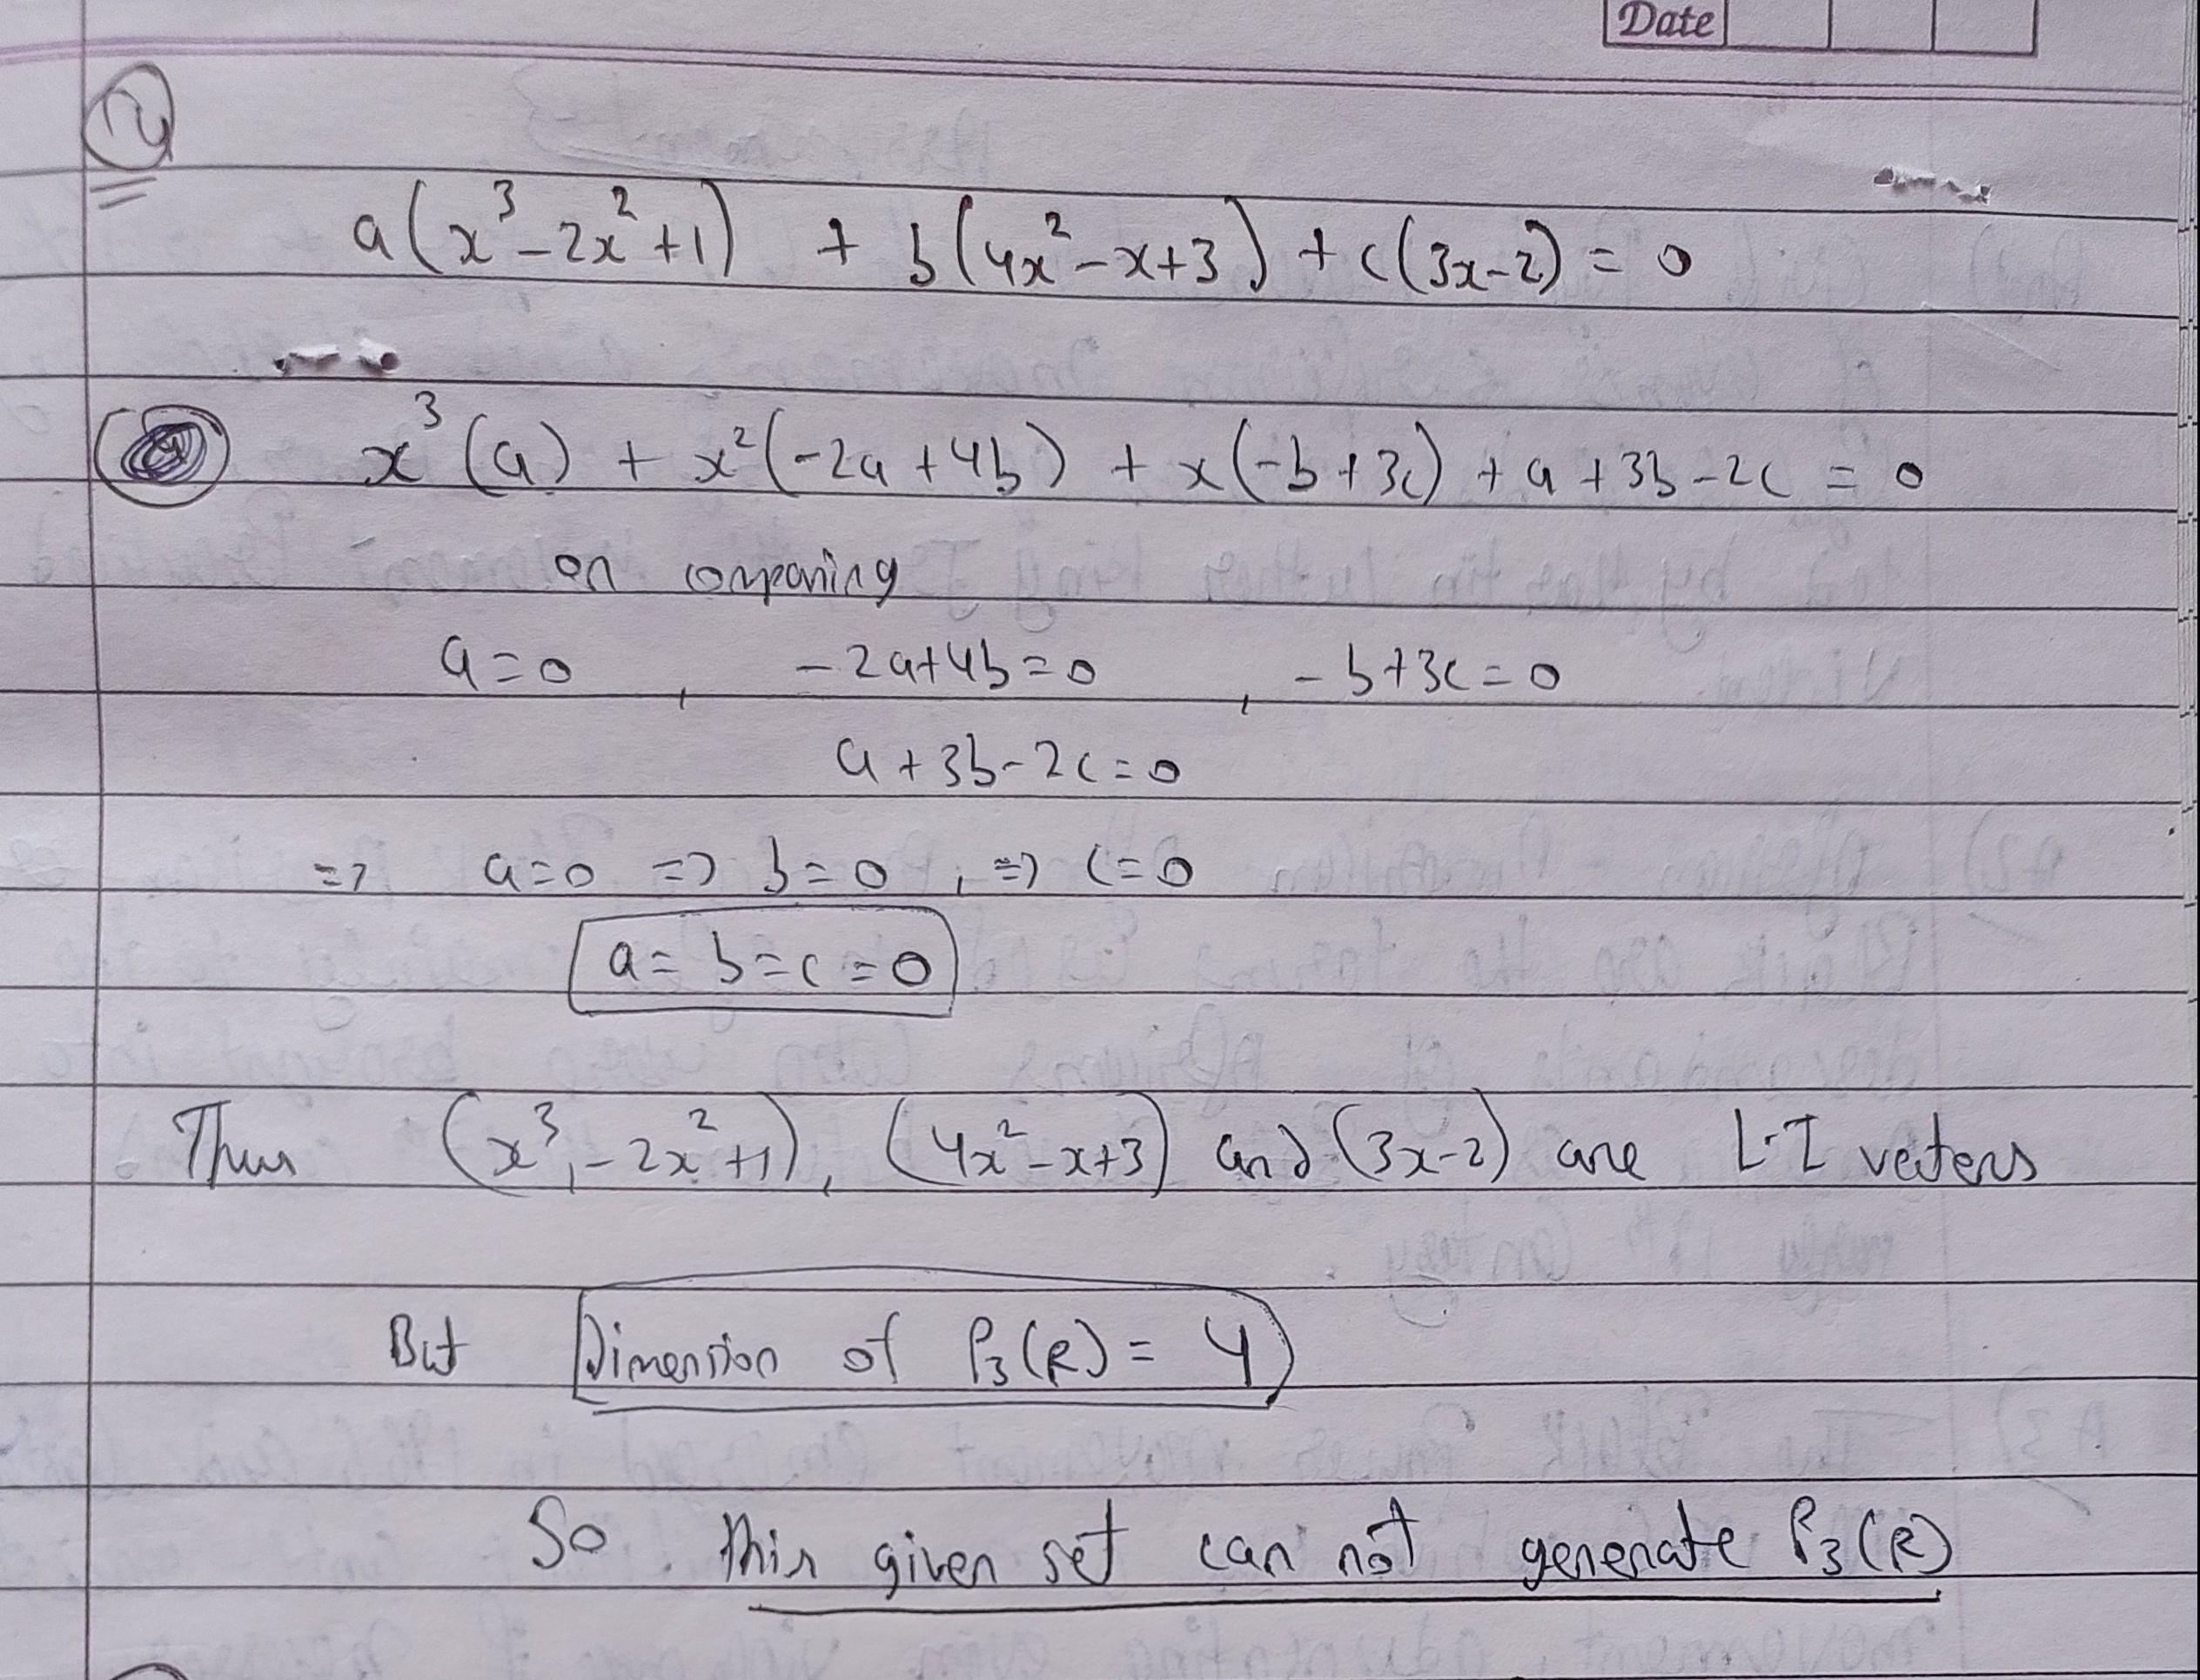 Date
2
a(x³-2x²+1) + b(4x²-x+3) + c(3x-2) = 0
x³(a) + x²(-2a+4b) + x(-b+3c) + a+3b-2c = 0
on comparing
a=0 , -2a+4b=0 , -b+3c=0
a+3b-2c=0
=> a=0 => b=0 , => c=0
a=b=c=0
Thus (x³,-2x²+1), (4x²-x+3) and (3x-2) are L.I vectors
But Dimension of P₃(R) = 4
So this given set can not generate P₃(R)